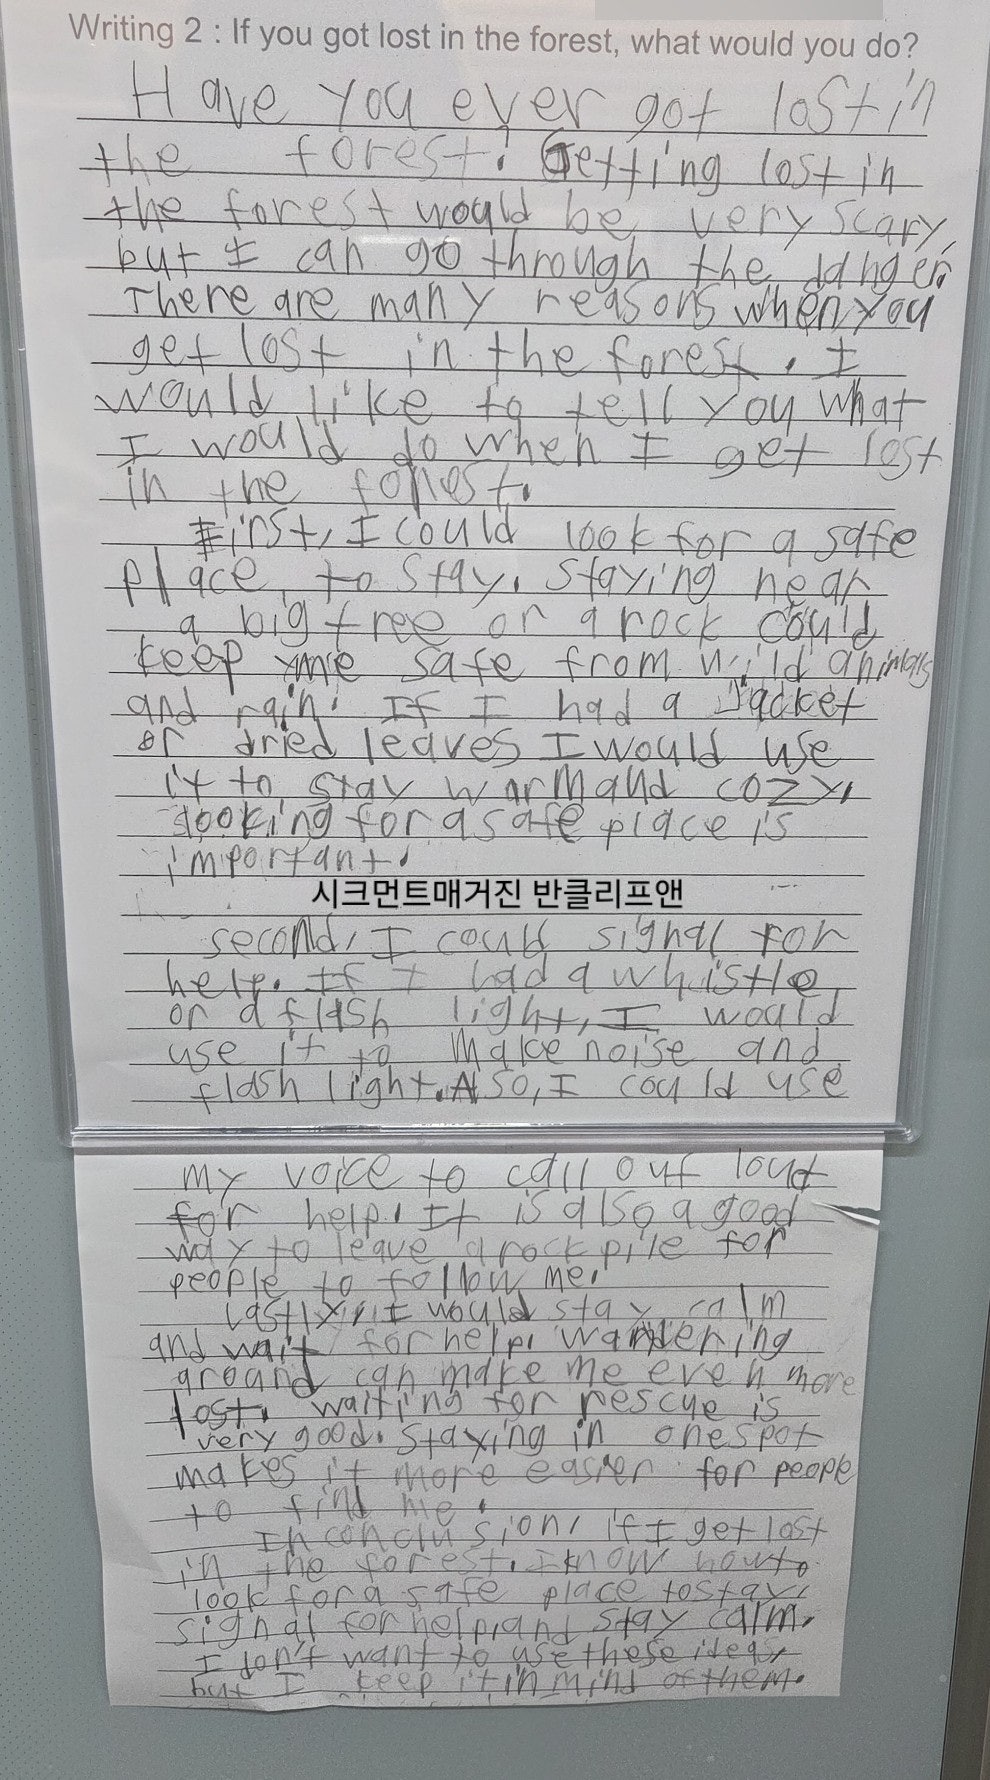 Writing 2 : If you got lost in the forest, what would you do?
Have you ever got lost in
the forest? Getting lost in
the forest would be very scary,
but I can go through the danger.
There are many reasons when you
get lost in the forest. I
would like to tell you what
I would do when I get lost
in the forest.
First, I could look for a safe
place to stay. staying near
a big tree or a rock could
keep me safe from wild animals
and rain. If I had a Jacket
or dried leaves I would use
it to stay warm and cozy.
looking for a safe place is
important.
시크먼트매거진 반클리프앤
second, I could signal for
help. If I had a whistle
or a flash light, I would
use it to make noise and
flash light. Also, I could use
my voice to call out loud
for help. It is also a good
way to leave a rock pile for
people to follow me.
Lastly, I would stay calm
and wait for help. wandering
around can make me even more
lost. waiting for rescue is
very good. staying in one spot
makes it more easier for people
to find me.
In conclusion, if I get lost
in the forest, I know how to
look for a safe place to stay,
signal for help, and stay calm.
I don't want to use these ideas,
but I keep it in mind of them.